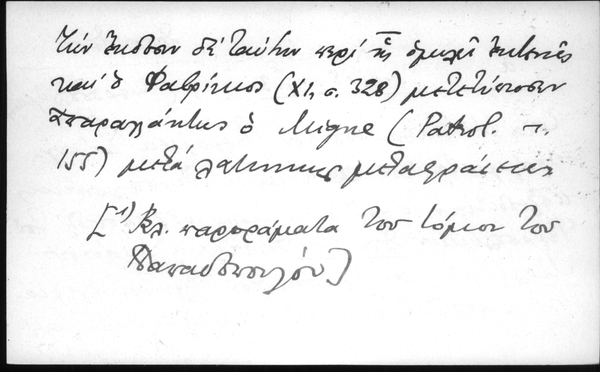 Τὴν ἔκδοσιν δὲ ταύτην περὶ ἧς ὁμιλεῖ ἐκτενῶς
καὶ ὁ Φαβρίκιος (XI, σ. 328) μετετύπωσεν
ἀπαραλλάκτως ὁ Migne (Patrol. τ.
155) μετὰ λατινικῆς μεταφράσεως
[¹) Βλ. παροράματα τοῦ τόμου τοῦ
Παπαδοπούλου]